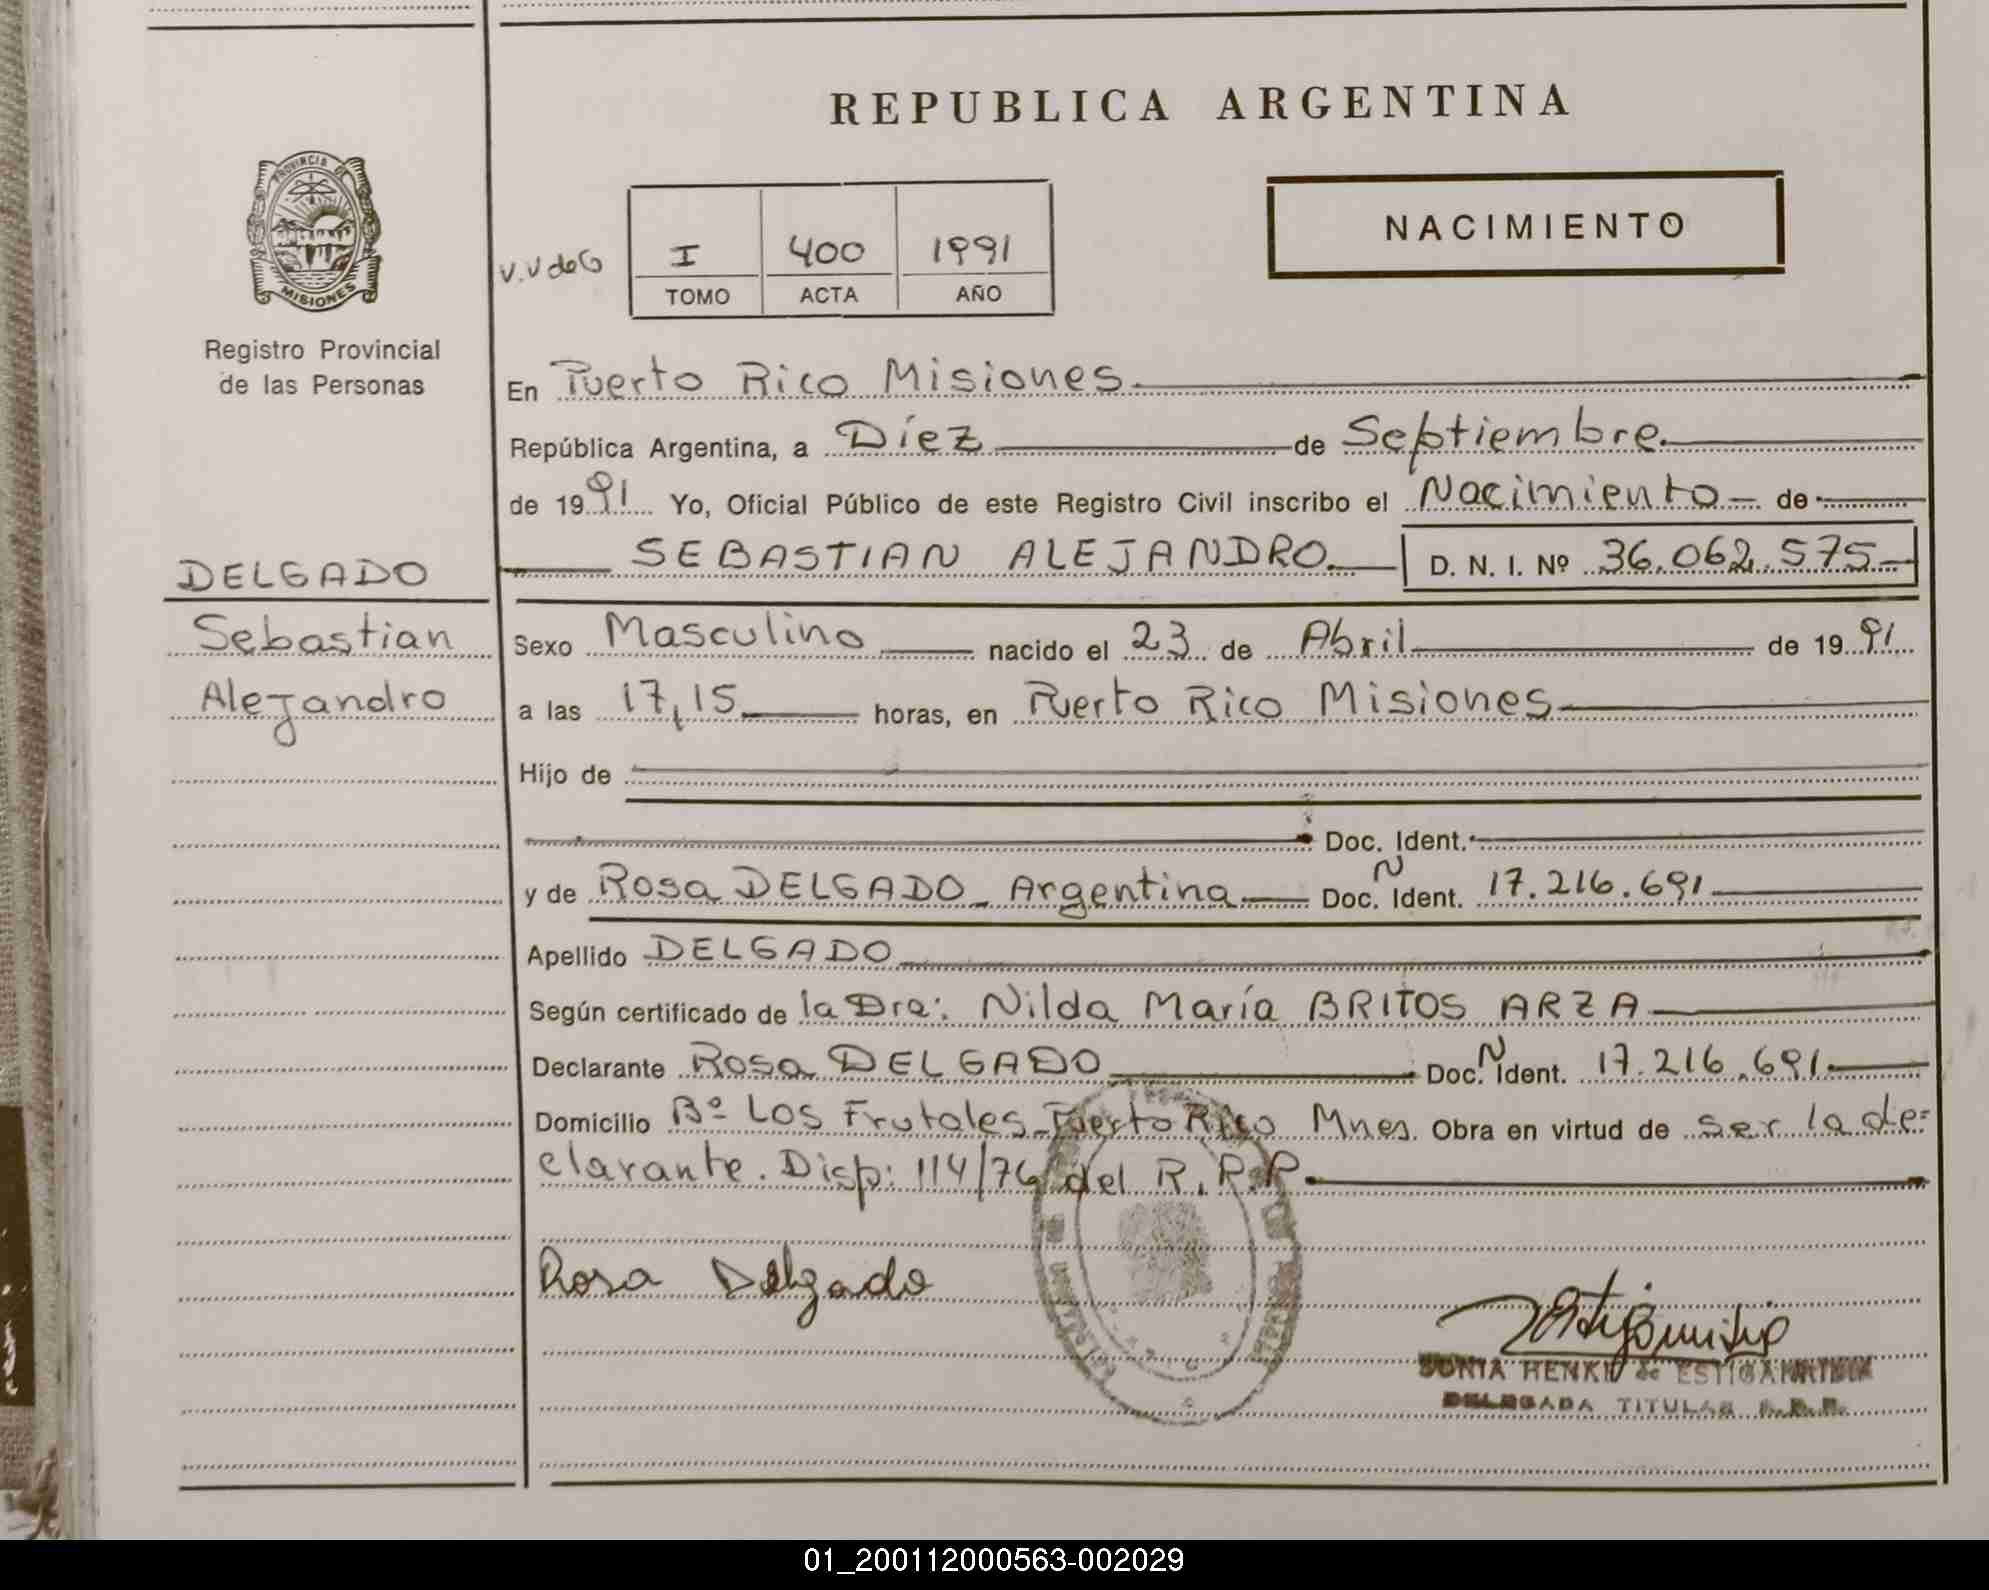 REPUBLICA ARGENTINA
PROVINCIA DE
MISIONES
Registro Provincial
de las Personas
NACIMIENTO
I 400 1991
TOMO ACTA AÑO
En Puerto Rico Misiones
República Argentina, a Díez de Septiembre
de 1991 Yo, Oficial Público de este Registro Civil inscribo el Nacimiento de
DELGADO
SEBASTIAN ALEJANDRO D. N. I. Nº 36.062.575
Sebastian
Sexo Masculino nacido el 23 de Abril de 1991
Alejandro
a las 17,15 horas, en Puerto Rico Misiones
Hijo de
Doc. Ident.
y de Rosa DELGADO - Argentina Doc. N Ident. 17.216.691
Apellido DELGADO
Según certificado de la Dra: Nilda María BRITOS ARZA
Declarante Rosa DELGADO Doc. N Ident. 17.216.691
Domicilio Bº Los Frutales - Puerto Rico Mnes. Obra en virtud de ser la de=
clarante. Disp: 114/76 del R.P.P.
Rosa Delgado
SONIA HENKE de ESTIGARRIBIA
DELEGADA TITULAR R.P.P.
01_200112000563-002029